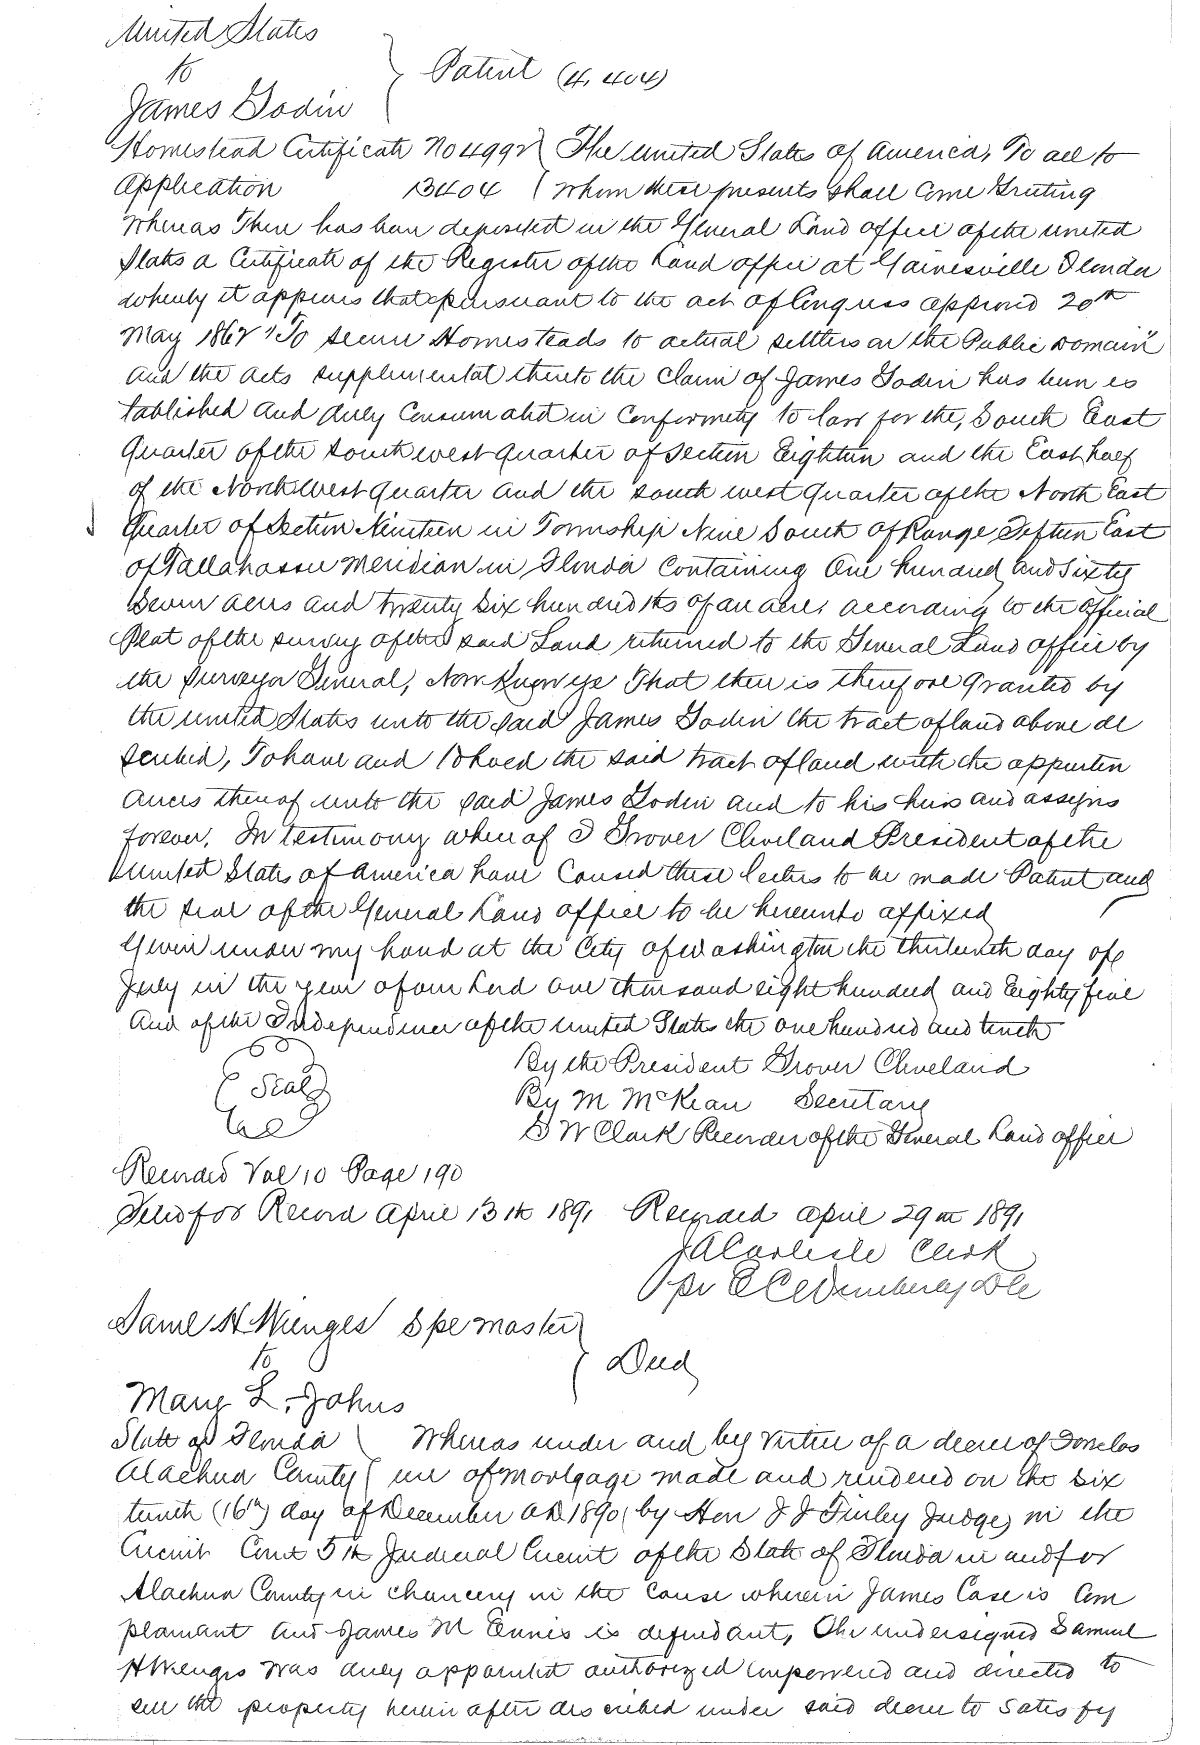 United States
to
James Godin
Patent (4,404)
Homestead Certificate No 4992 The United States of America, To all to
Application 13404 whom these presents shall come Greeting
Whereas There has been deposited in the General Land office of the united
States a Certificate of the Register of the Land office at Gainesville Florida
whereby it appears that pursuant to the act of Congress approved 20th
May 1862 "To secure Homesteads to actual settlers on the Public Domain"
and the acts supplemental thereto the claim of James Godin has been es
tablished and duly Consumated in Conformity to law for the, South East
Quarter of the South west quarter of Section Eighteen and the East half
of the North West quarter and the South west quarter of the North East
Quarter of Section Nineteen in Township Nine South of Range Fifteen East
of Tallahassee Meridian in Florida Containing One hundred and Sixty
Seven acres and twenty six hundredths of an acre, according to the official
Plat of the survey of the said Land returned to the General Land office by
the Surveyor General, Now Know ye That there is therefore granted by
the united States unto the said James Godin the tract of land above de
scribed, To have and to hold the said tract of land with the appurten
ances thereof unto the said James Godin and to his heirs and assigns
forever, In testimony whereof I Grover Cleveland President of the
United States of America have Caused these letters to be made Patent and
the seal of the General Land office to be hereunto affixed
Given under my hand at the City of Washington the thirteenth day of
July in the year of our Lord one thousand eight hundred and Eighty five
And of the Independence of the United States the one hundred and tenth
Seal
By the President Grover Cleveland
By M McKean Secretary
S W Clark Recorder of the General Land office
Recorded Vol 10 Page 190
Filed for Record April 13th 1891 Recorded april 29th 1891
J A Carlisle Clerk
pr E C Wimberly D C
Saml H Wienges Spe master
to
Mary L. Johns
Deed
State of Florida Whereas under and by virtue of a decree of Foreclos
Alachua County ure of mortgage made and rendered on the six
teenth (16th) day of December AD 1890, by Hon J J Finley Judge, in the
Circuit Court 5th Judicial Circuit of the State of Florida in and for
Alachua County in chancery in the cause wherein James Case is Com
plainant and James M Ennis is defendant, The undersigned Samuel
H Wienges was duly appointed authorized empowered and directed to
sell the property herein after described under said decree to satisfy